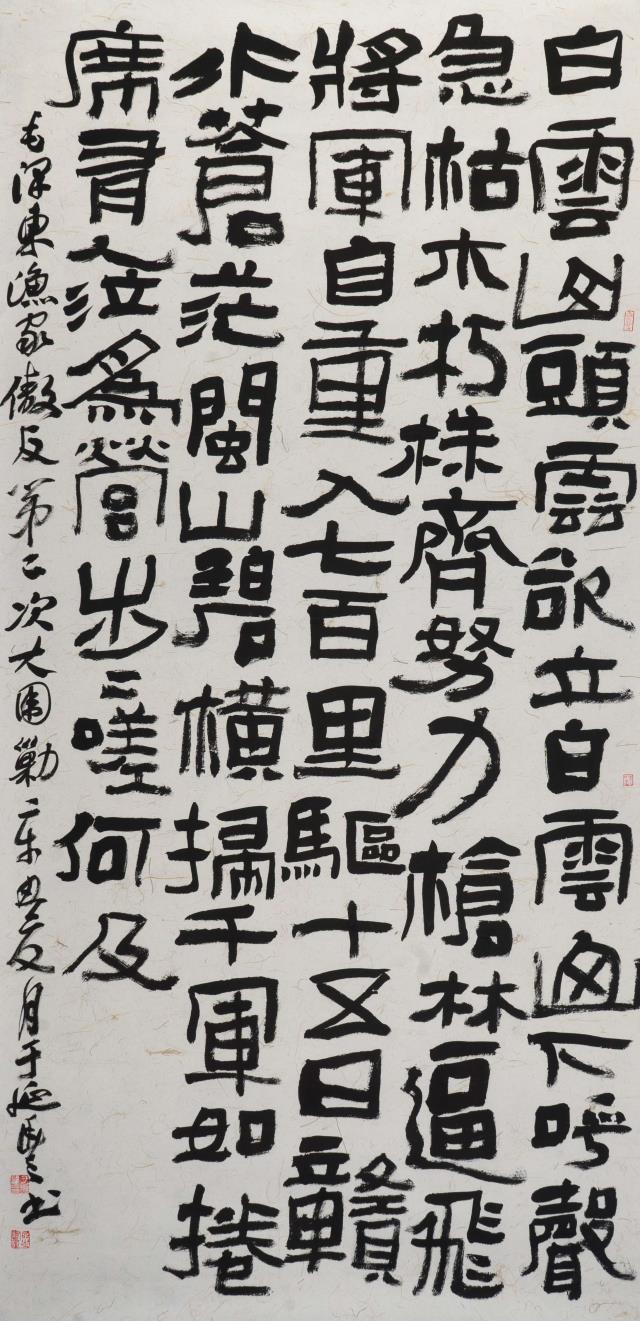 白雲山頭雲欲立白雲山下呼聲
急枯木朽株齊努力槍林逼飛
將軍自重入七百里驅十五日贛
水蒼茫閩山碧橫掃千軍如捲
席有人泣為營步〻嗟何及
毛澤東漁家傲反第二次大圍勦辛丑夏月于書